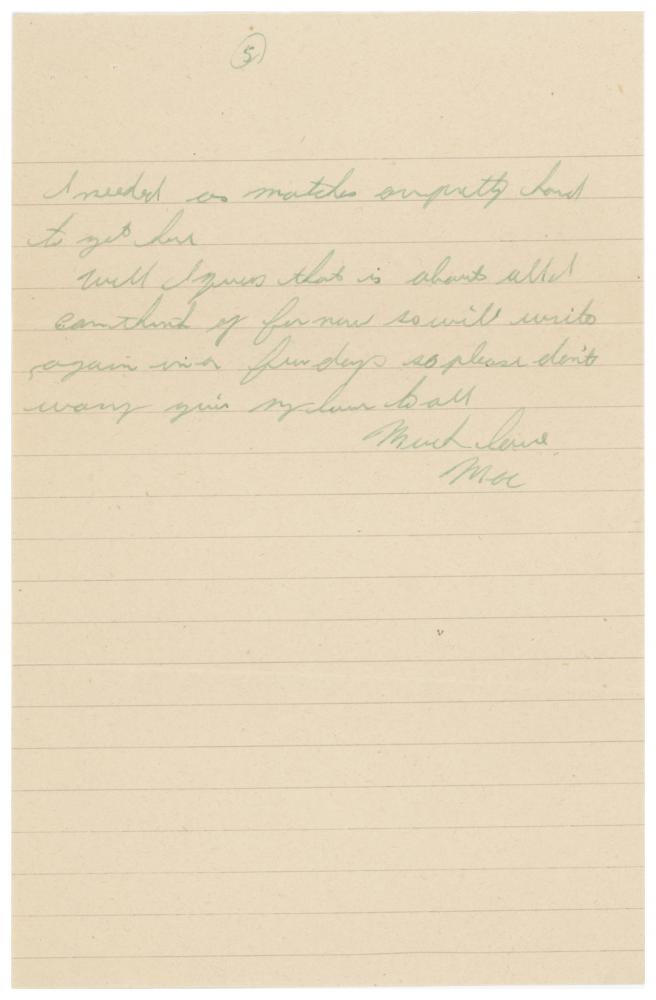 5
I needed as matches are pretty hard
to get here
Well I guess that is about all I
can think of for now so will write
again in a few days so please don't
worry give my love to all
Much love
Mac